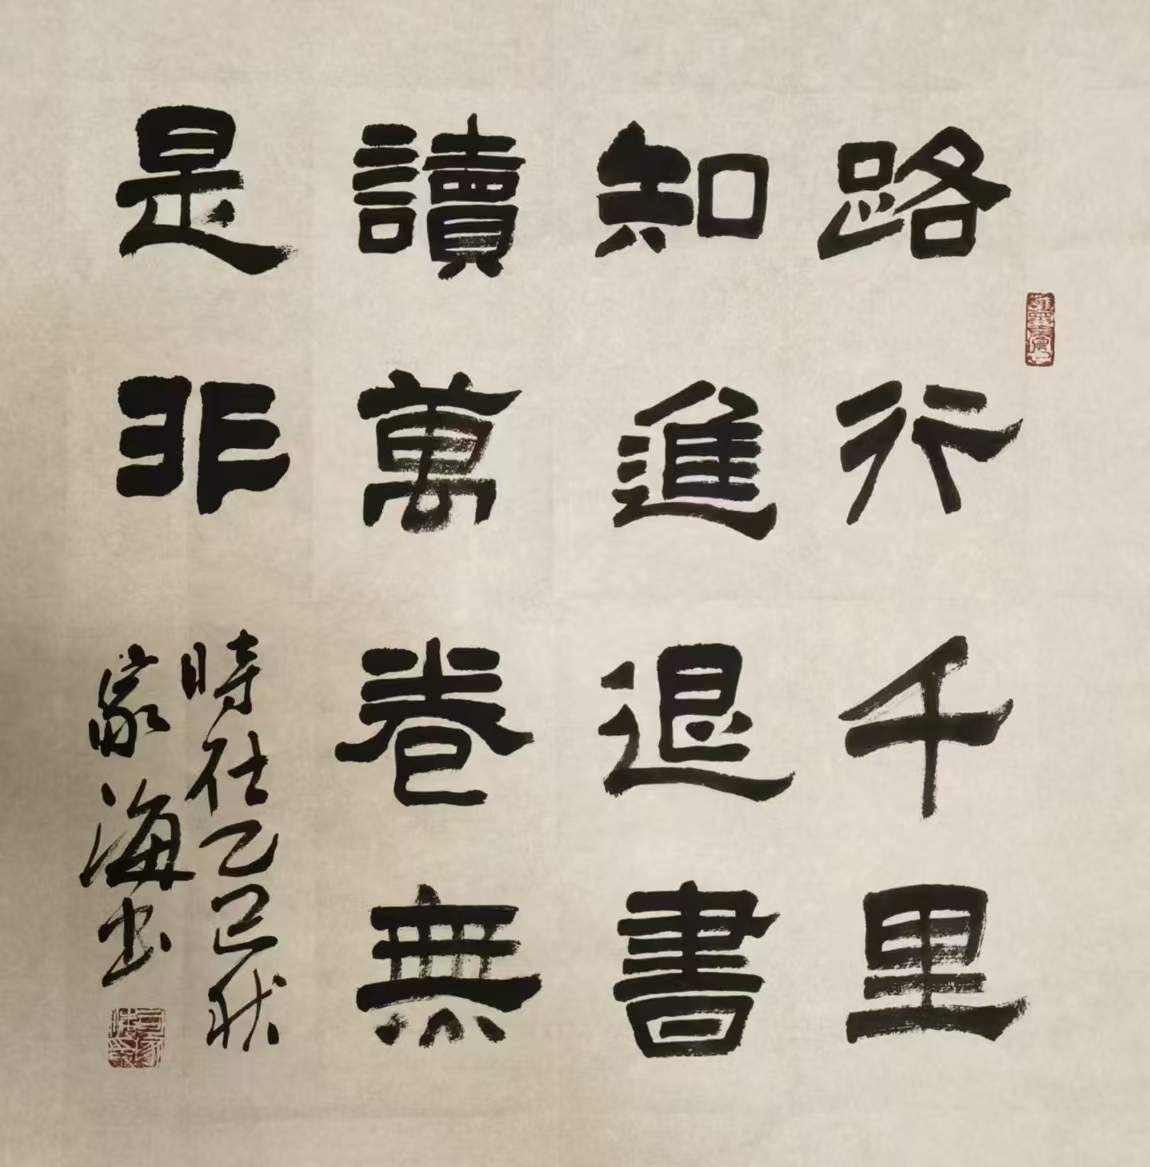 路行千里
知進退書
讀萬卷無
是非
時在乙巳秋
家海书